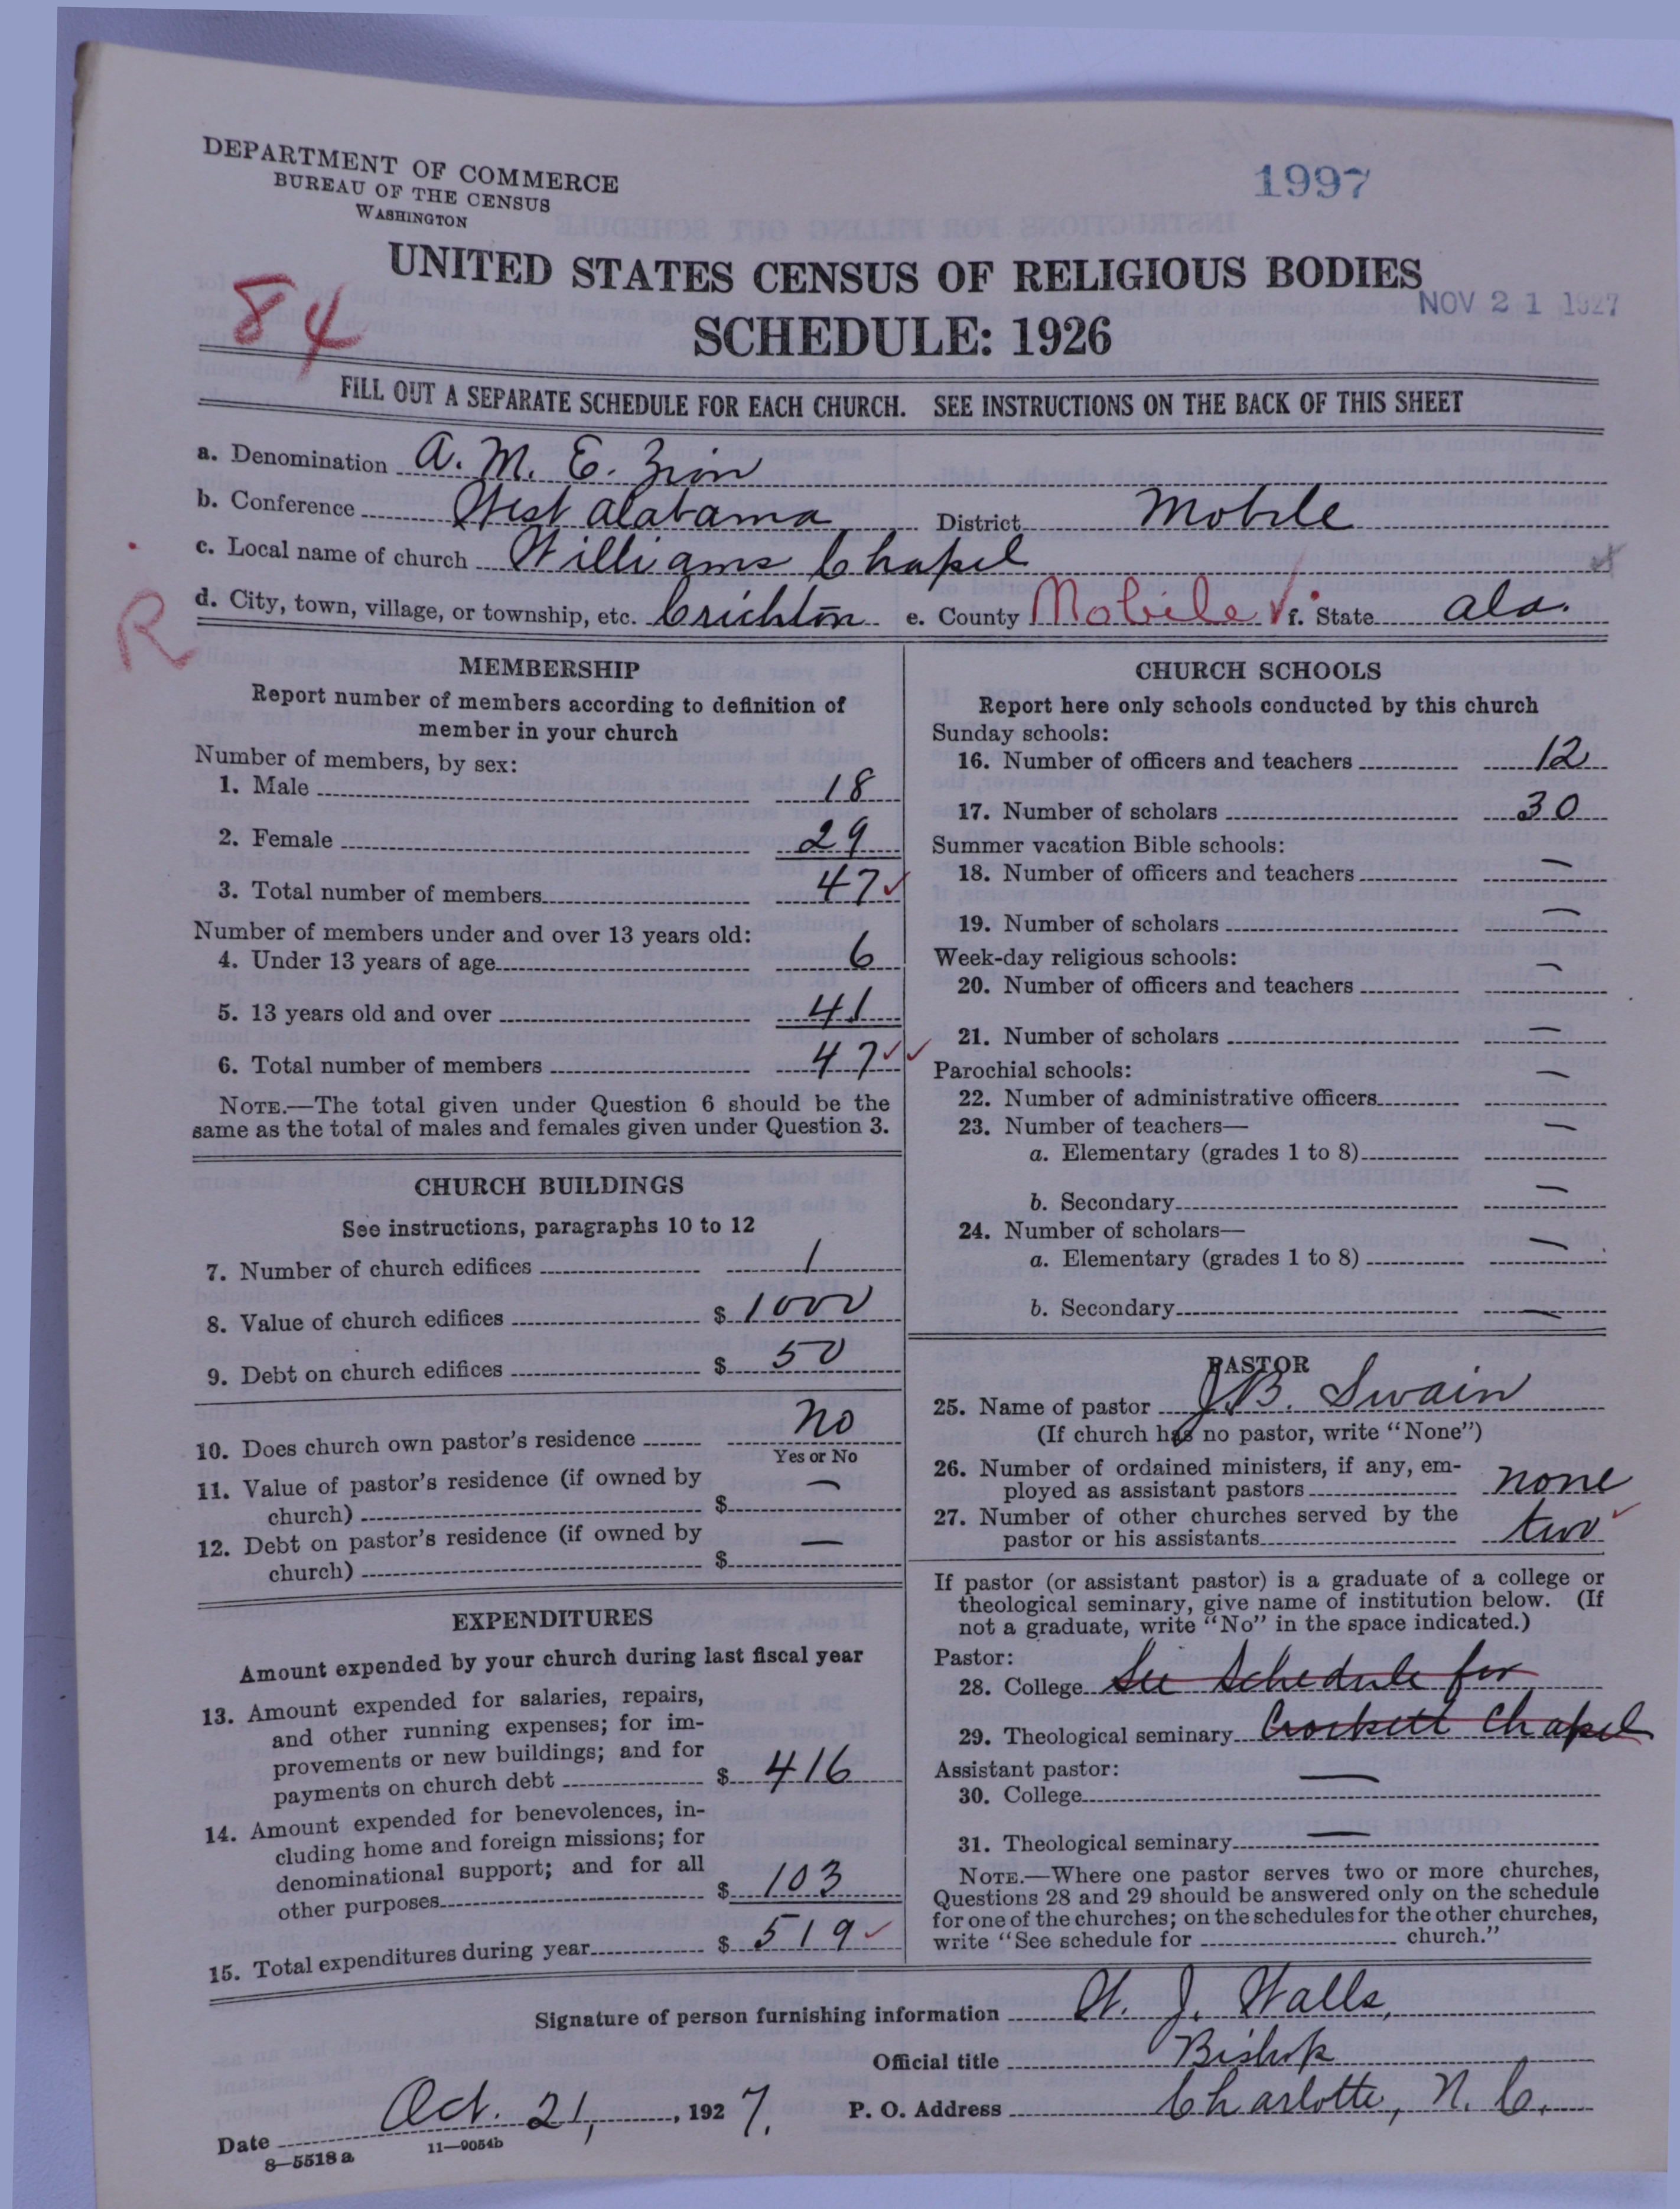 DEPARTMENT OF COMMERCE
BUREAU OF THE CENSUS
WASHINGTON
1997
UNITED STATES CENSUS OF RELIGIOUS BODIES
NOV 21 1927
84
SCHEDULE: 1926
FILL OUT A SEPARATE SCHEDULE FOR EACH CHURCH. SEE INSTRUCTIONS ON THE BACK OF THIS SHEET
a. Denomination A. M. E. Zion
b. Conference West Alabama District Mobile
c. Local name of church Williams Chapel
d. City, town, village, or township, etc. Crichton e. County Mobile f. State Ala.
R
MEMBERSHIP
Report number of members according to definition of
member in your church
Number of members, by sex:
1. Male 18
2. Female 29
3. Total number of members 47
Number of members under and over 13 years old:
4. Under 13 years of age 6
5. 13 years old and over 41
6. Total number of members 47
NOTE.—The total given under Question 6 should be the
same as the total of males and females given under Question 3.
CHURCH BUILDINGS
See instructions, paragraphs 10 to 12
7. Number of church edifices 1
8. Value of church edifices $ 1000
9. Debt on church edifices $ 50
10. Does church own pastor's residence no
Yes or No
11. Value of pastor's residence (if owned by
church) $ —
12. Debt on pastor's residence (if owned by
church) $ —
EXPENDITURES
Amount expended by your church during last fiscal year
13. Amount expended for salaries, repairs,
and other running expenses; for im-
provements or new buildings; and for
payments on church debt $ 416
14. Amount expended for benevolences, in-
cluding home and foreign missions; for
denominational support; and for all
other purposes $ 103
15. Total expenditures during year $ 519
CHURCH SCHOOLS
Report here only schools conducted by this church
Sunday schools:
16. Number of officers and teachers 12
17. Number of scholars 30
Summer vacation Bible schools:
18. Number of officers and teachers —
19. Number of scholars —
Week-day religious schools:
20. Number of officers and teachers —
21. Number of scholars —
Parochial schools:
22. Number of administrative officers —
23. Number of teachers—
a. Elementary (grades 1 to 8) —
b. Secondary —
24. Number of scholars—
a. Elementary (grades 1 to 8) —
b. Secondary —
PASTOR
25. Name of pastor J. B. Swain
(If church has no pastor, write "None")
26. Number of ordained ministers, if any, em-
ployed as assistant pastors none
27. Number of other churches served by the
pastor or his assistants two
If pastor (or assistant pastor) is a graduate of a college or
theological seminary, give name of institution below. (If
not a graduate, write "No" in the space indicated.)
Pastor:
28. College See Schedule for
29. Theological seminary Crockett Chapel
Assistant pastor:
30. College —
31. Theological seminary —
NOTE.—Where one pastor serves two or more churches,
Questions 28 and 29 should be answered only on the schedule
for one of the churches; on the schedules for the other churches,
write "See schedule for church."
Signature of person furnishing information W. J. Walls,
Official title Bishop
Date Oct. 21, 1927. P. O. Address Charlotte, N. C.
8—5518 a 11—9054b